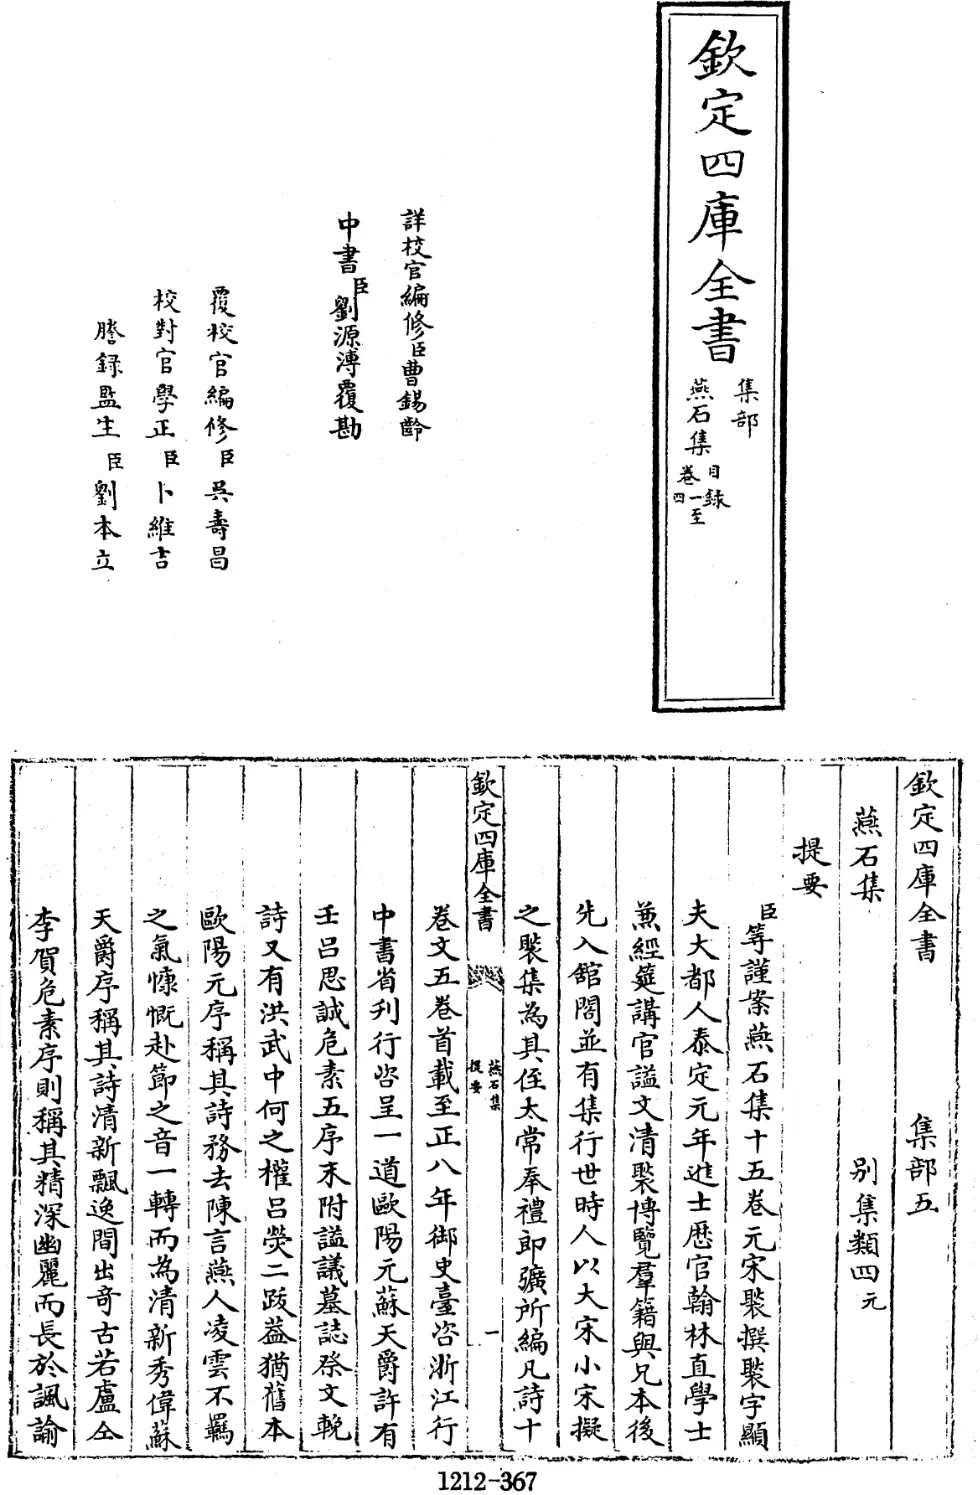 欽定四庫全書
集部
燕石集
目錄
卷一至
四
詳校官編修臣曹錫齡
中書臣劉源溥覆勘
覆校官編修臣吳壽昌
校對官學正臣卜維吉
謄錄監生臣劉本立
欽定四庫全書 集部五
燕石集 別集類四元
提要
臣等謹案燕石集十五卷元宋褧撰褧字顯
夫大都人泰定元年進士歷官翰林直學士
兼經筵講官諡文清褧博覽羣籍與兄本後
先入舘閣並有集行世時人以大宋小宋擬
之褧集為其侄太常奉禮郎彍所編凡詩十
欽定四庫全書
燕石集
提要
一
卷文五卷首載至正八年御史臺咨浙江行
中書省刋行咨呈一道歐陽元蘇天爵許有
壬呂思誠危素五序末附諡議墓誌祭文輓
詩又有洪武中何之權呂熒二跋葢猶舊本
歐陽元序稱其詩務去陳言燕人凌雲不羈
之氣慷慨赴節之音一轉而為清新秀偉蘇
天爵序稱其詩清新飄逸間出奇古若盧仝
李賀危素序則稱其精深幽麗而長於諷諭
1212-367